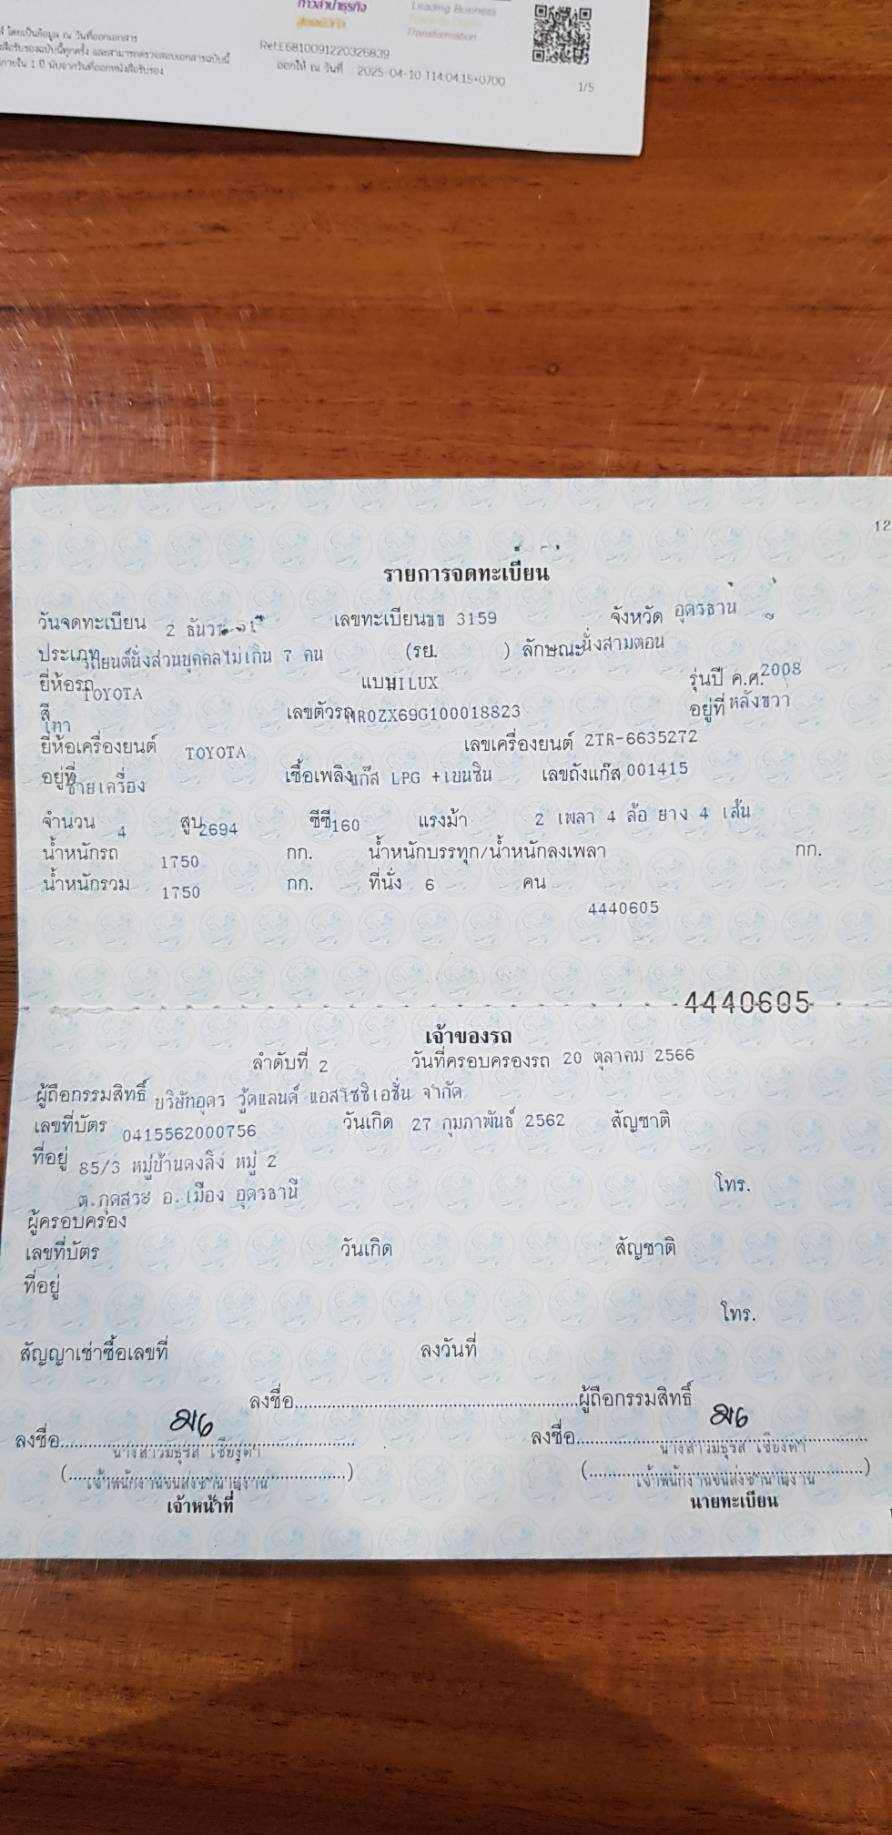 ก้าวล้ำธุรกิจ
Leading Business
Transformation
Ref:E6810091220326839
ออกให้ ณ วันที่ : 2025-04-10 T14:04:15+0700
1/5
นี้ โดยเป็นข้อมูล ณ วันที่ออกเอกสาร
ภายใน 1 ปี นับจากวันที่ออกหนังสือรับรอง
12
รายการจดทะเบียน
วันจดทะเบียน 2 เลขทะเบียน ขข 3159 จังหวัด อุดรธานี
ประเภท รถยนต์นั่งส่วนบุคคลไม่เกิน 7 คน (รย. ) ลักษณะ นั่งสามตอน
ยี่ห้อรถ TOYOTA แบบ HILUX รุ่นปี ค.ศ. 2008
สี เทา เลขตัวรถ MR0ZX69G100018823 อยู่ที่ หลังขวา
ยี่ห้อเครื่องยนต์ TOYOTA เลขเครื่องยนต์ 2TR-6635272
อยู่ที่ ซ้ายเครื่อง เชื้อเพลิง แก๊ส LPG +เบนซิน เลขถังแก๊ส 001415
จำนวน 4 สูบ 2694 ซีซี 160 แรงม้า 2 เพลา 4 ล้อ ยาง 4 เส้น
น้ำหนักรถ 1750 กก. น้ำหนักบรรทุก/น้ำหนักลงเพลา กก.
น้ำหนักรวม 1750 กก. ที่นั่ง 6 คน
4440605
4440605
เจ้าของรถ
ลำดับที่ 2 วันที่ครอบครองรถ 20 ตุลาคม 2566
ผู้ถือกรรมสิทธิ์ บริษัทอุดร วู้ดแลนด์ แอสโซซิเอชั่น จำกัด
เลขที่บัตร 0415562000756 วันเกิด 27 กุมภาพันธ์ 2562 สัญชาติ
ที่อยู่ 85/3 หมู่บ้านดงลิง หมู่ 2
ต.กุดสระ อ.เมือง อุดรธานี โทร.
ผู้ครอบครอง
เลขที่บัตร วันเกิด สัญชาติ
ที่อยู่
โทร.
สัญญาเช่าซื้อเลขที่ ลงวันที่
ลงชื่อ........................ผู้ถือกรรมสิทธิ์
ลงชื่อ........................ ลงชื่อ........................
(เจ้าพนักงานขนส่งชำนาญงาน) (เจ้าพนักงานขนส่งชำนาญงาน)
เจ้าหน้าที่ นายทะเบียน